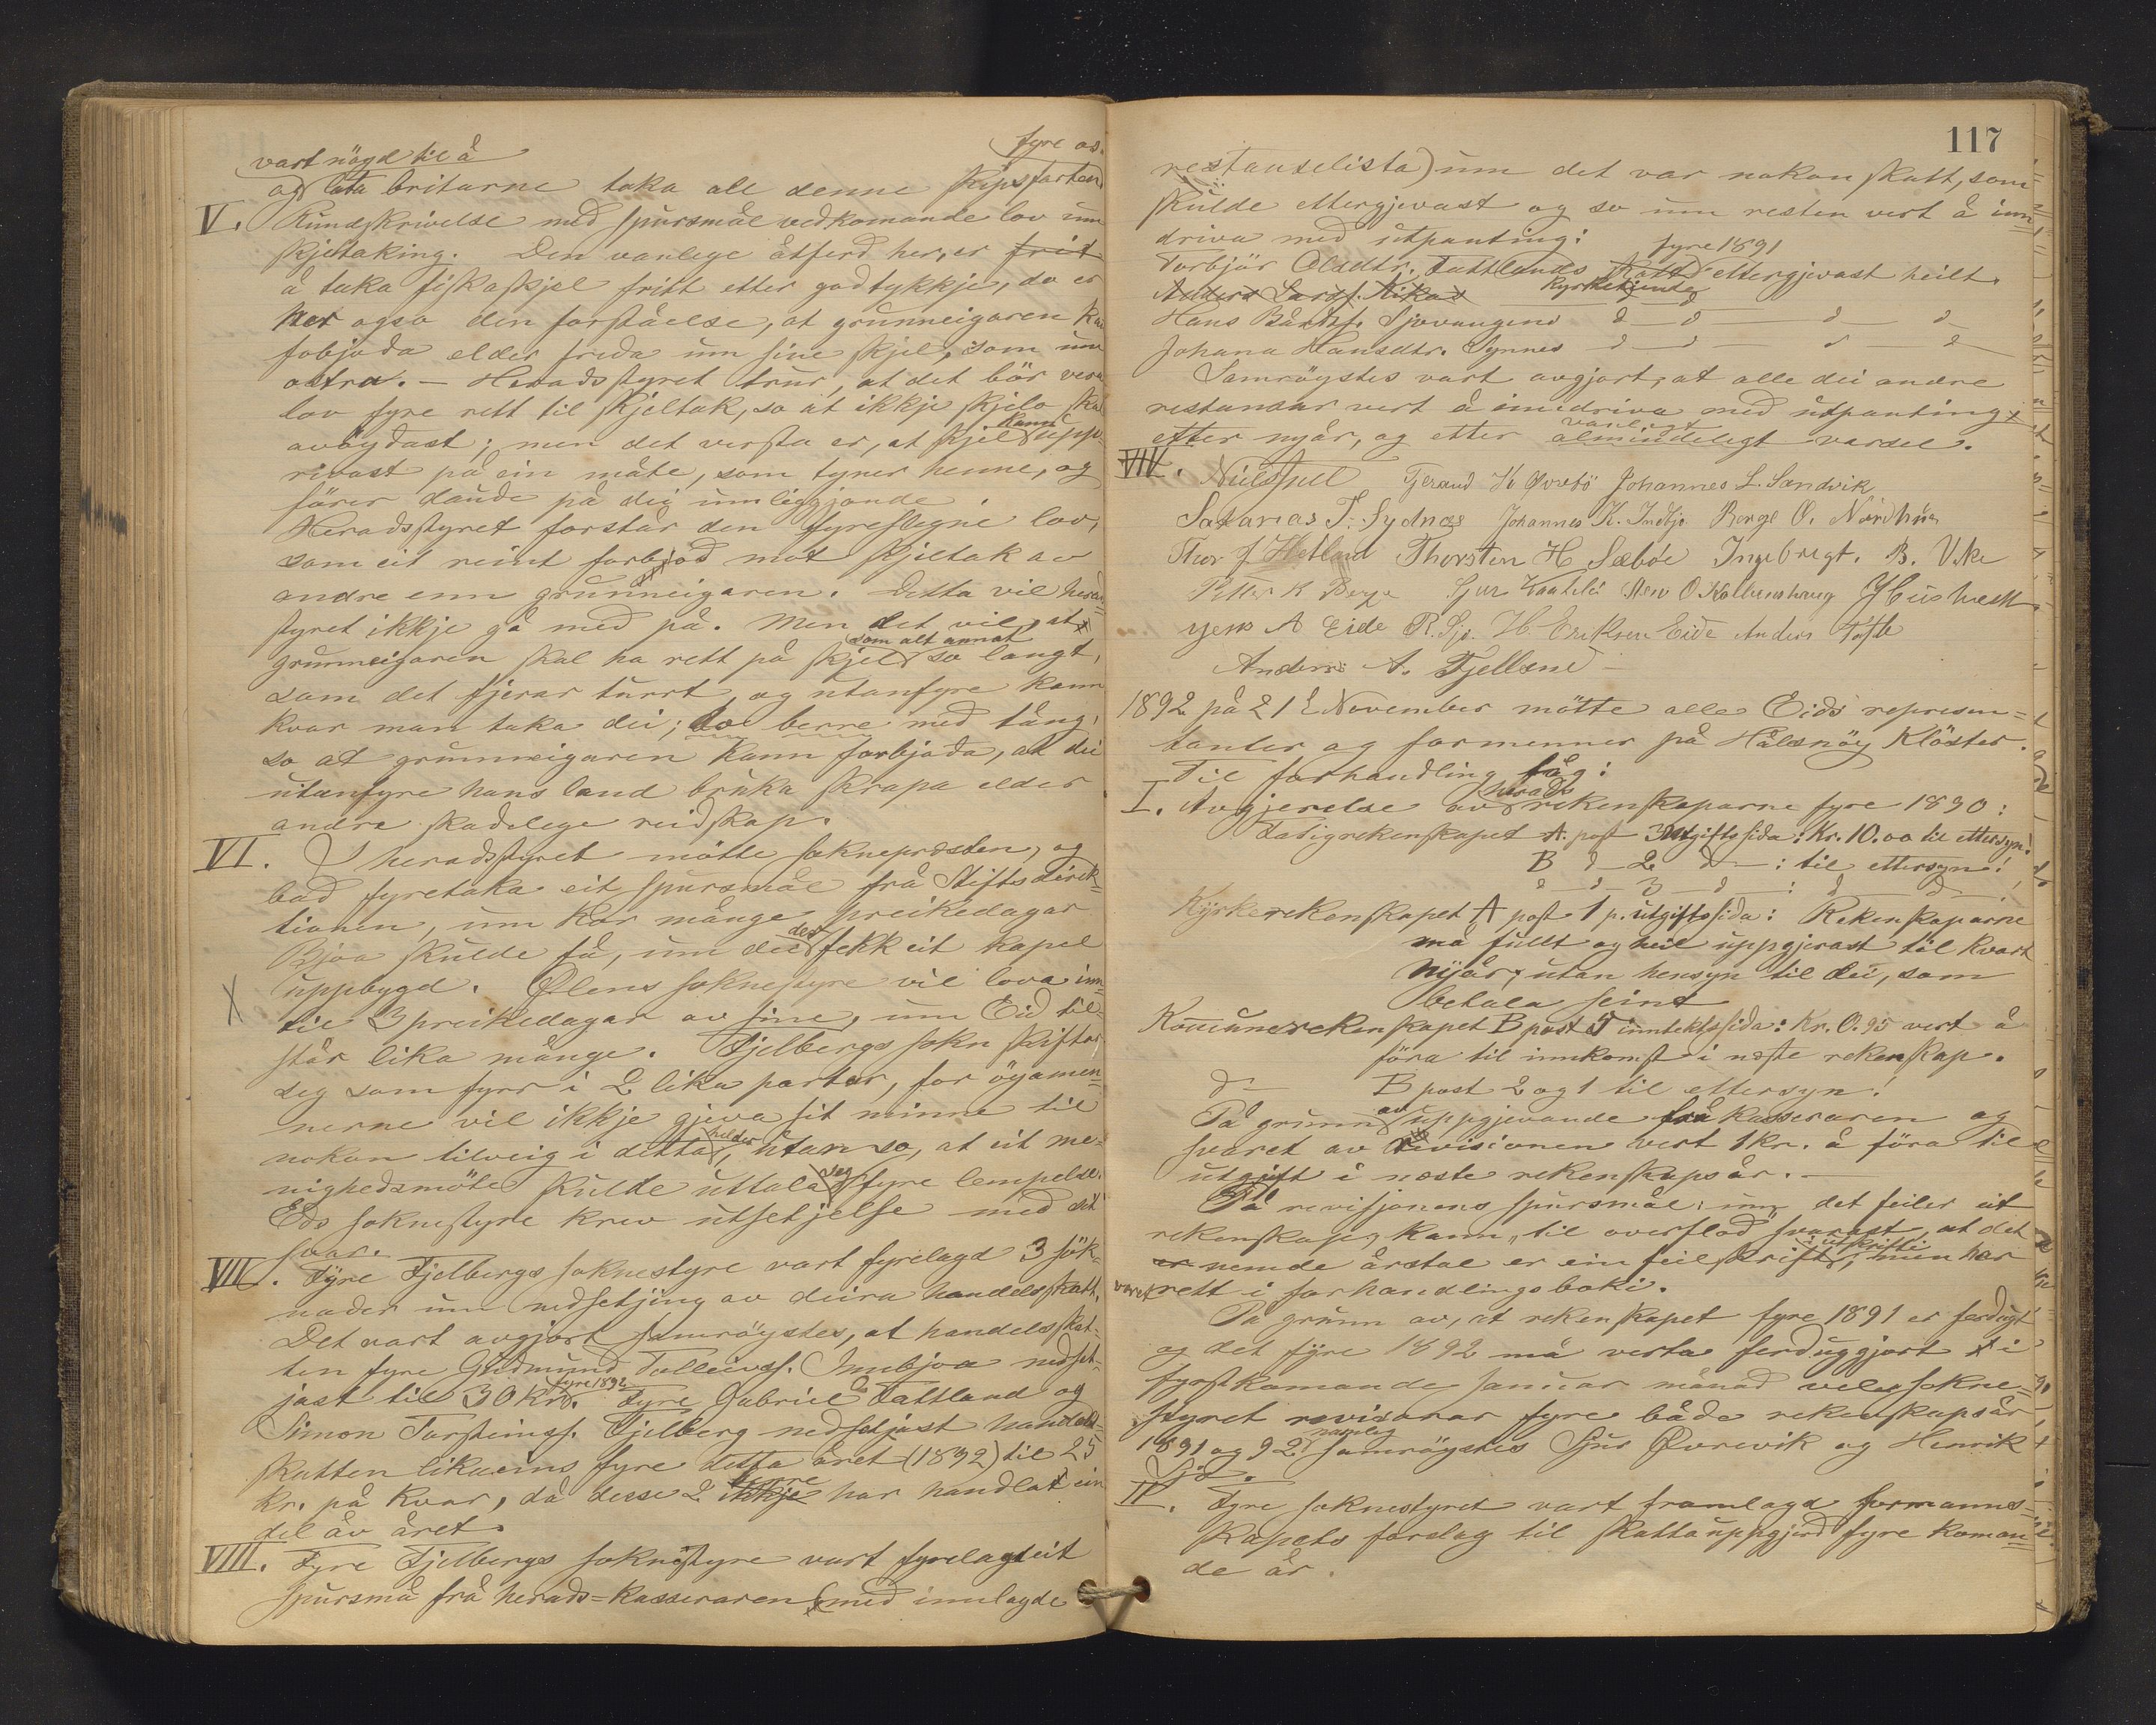 fyre os.
vart nögd til å
og lata britarne taka all denne skipsfarten
V. Rundskrivelse med spursmål vedkomande lov um
skjeltaking. Den vanlege åtferd her, er frit
å taka fiskaskjel fritt etter godtykkje, do er
her ogso den forståelse, at grunneigaren kan
fobjoda elder freda um sine skjel, som um
ostra. — Heradsstyret trur, at det bör vera
lov fyre rett til skjeltak, so at ikkje skjelo skal
avöydast; men det versta er, at skjel kann upp-
rivast på ein måte, som tyner henne, og
förer daude på dei umliggjande.
Heradsstyret forstår den fyreslegne lov,
som eit reint forbjod mot skjeltak av
andre enn grunneigaren. Detta vil herads-
styret ikkje gå med på. Men det vil, at
grunneigaren skal ha rett på skjel som alt annat so langt,
som det fjerar turrt, og utanfyre kann
kvar man taka dei; do berre med tång,
so at grunneigaren kann forbjoda, at dei
utanfyre hans land bruka skrapa elder
andre skadelege reidskap.
VI. I heradsstyret mötte sokneprosten, og
bad fyretaka eit spursmål frå Stiftsdirek-
tionen, um kor mange preikedagar
Bjoa skulde få, um det der fekk eit kapel
uppbygd. Ølens soknestyre vil lova inn-
til 3 preikedagar av sine, um Eid til-
står lika mange. Fjelbergs sokn skiftar
seg som fyrr i 2 lika partar, for öyamen-
nerne vil ikkje gjeva sit minne til
nokon tilveig i detta helder, utan so, at eit me-
nighedsmöte skulde uttala seg fyre lempelse.
Eids soknestyre krev utsetjelse med sit
svar.
VII. Fyre Fjelbergs soknestyre vart fyrelagd 3 sök-
nader um nedsetjing av deira handelsskatt.
Det vart avgjort samröystes, at handelsskat-
ten fyre Gudmund Tolleivs. Innbjoa nedset-
jast til 30 kr. fyre 1892 Fyre Gabriel Tattland og
Simon Torsteinss. Fjelberg nedsetjast handels-
skatten likueins fyre detta året (1892) til 25
kr. på kvar, då desse 2 ikkje berre har handlat ein
del av året.
VIII. Fyre Fjelbergs soknestyre vart fyrelagt eit
spursmå frå herads=kasseraren (med innlagde
117
restanselista) um det var nokon skatt, som
skulde ettergjevast og so um resten vert å inn-
driva med utpanting:
Torbjör Olsdtr. Tattlands skatt fyre 1891 ettergjevast heilt.
Anders Larss. Kikas kyrketjenta
Hans Bårds. Sjovangens d — d — d — d
Johana Hansdtr. Synnes d — d — d — d
Samröystes vart avgjort, at alle dei andre
restansar vert å inndriva med utpanting
etter nyår, og etter almindelegt vanlegt varsel.
VIV. Nielssell Tjerand K Øvrebö Johannes L. Sandvik
Sakarias T. Sydnæs Johannes K. Indbjo Berge O. Nordhus
Thor J Hetland Thorsten H Sæböe Ingebrigt. B. Vike
Petter K Berge Sjur Kaatelö Sten O. Kolbenshaug J Husvest
Jens A Eide R. Sjo. H Eriksen Eide Anders Tofte
Anders A. Fjellsne
1892 på 21 November mötte alle Eids represen-
tanter og formenner på Hålsnöy Klöster.
Til forhandling låg:
I. Avgjerelse av herads rekenskaparne fyre 1890:
Fatigrekenskapet A. post 3 utgiftssida: Kr. 10.00 til ettersyn!
B d 2 d — : til ettersyn!
d — d — 3 — d — : d — d —
Kyrkerekenskapet A post 1 p. utgiftssida: Rekenskaparne
må fullt og heil uppgjerast til kvart
nyår, utan hensyn til dei, som
betala seint
Komunerekenskapet B post 5 inntektssida: Kr. 0.95 vert å
föra til innkomst i næste rekenskap.
d — B post 2 og 1 til ettersyn!
På grunn av uppgjevande frå kasseraren og
svaret av revisionen vert 1 kr. å föra til
utgift i næste rekenskapsår. —
På revisjonens spursmål: um det feiler eit
rekenskap, kann „til overflod" svarast, at det
er nemde årstal er ein feilskrift i utskrifti, men har
varet rett i forhandlingsboki.
På grunn av, at rekenskapet fyre 1891 er ferdugt
og det fyre 1892 må verta ferduggjort i
fyrstkomande Januar månad veler sokne-
styret revisorar fyre både rekenskapsår
1891 og 92. namleg samröystes Sjur Øvrevik og Henrik
Sjo.
II. Fyre soknestyret vart framlagd formanns-
kapets forslag til skattauppgjerd fyre koman-
de år.